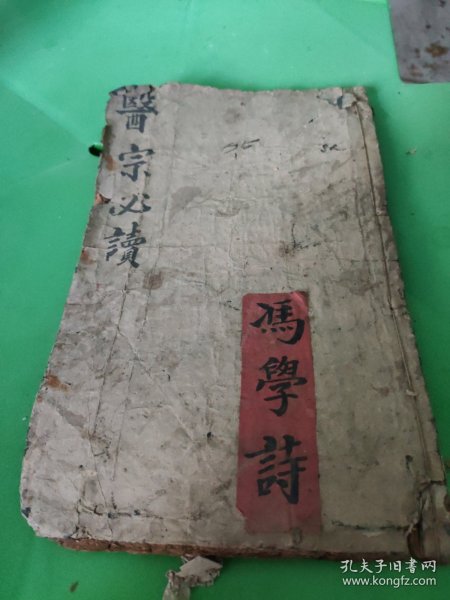 醫宗必讀
馮學詩
孔夫子旧书网
www.kongfz.com